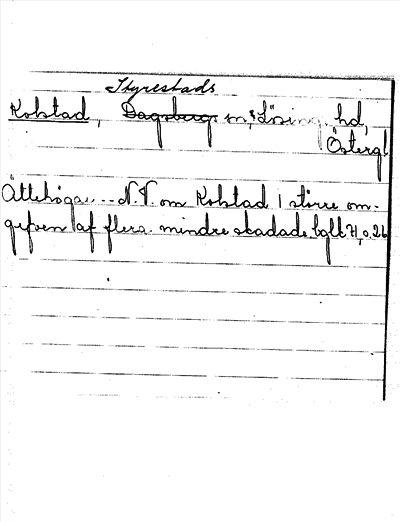 Styrestads
Kolstad, Dagsbergs sn, Lösings hd,
Östergl
Ättehögar... N.V. om Kolstad 1 större om-
gifven af flera mindre skadade, bgll 71, s. 26